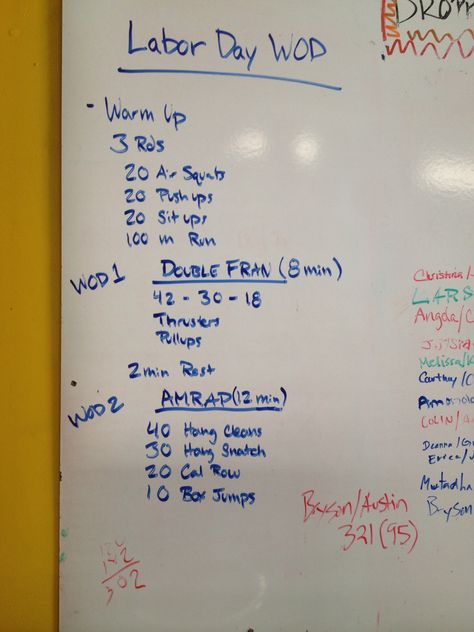 Labor Day WOD
- Warm Up
3 Rds
20 Air Squats
20 Push ups
20 Sit ups
100 m Run
WOD 1 DOUBLE FRAN (8 min)
42 - 30 - 18
Thrusters
Pullups
2 min Rest
WOD 2 AMRAP (12 min)
40 Hang Cleans
30 Hang Snatch
20 Cal Row
10 Box Jumps
Christina/
LARS
Angela/C
Melissa/K
Courtney/C
COLIN/
Deanna/G
Erica/
Mustapha
Bryson
Bryson/Austin
321 (95)
142
302